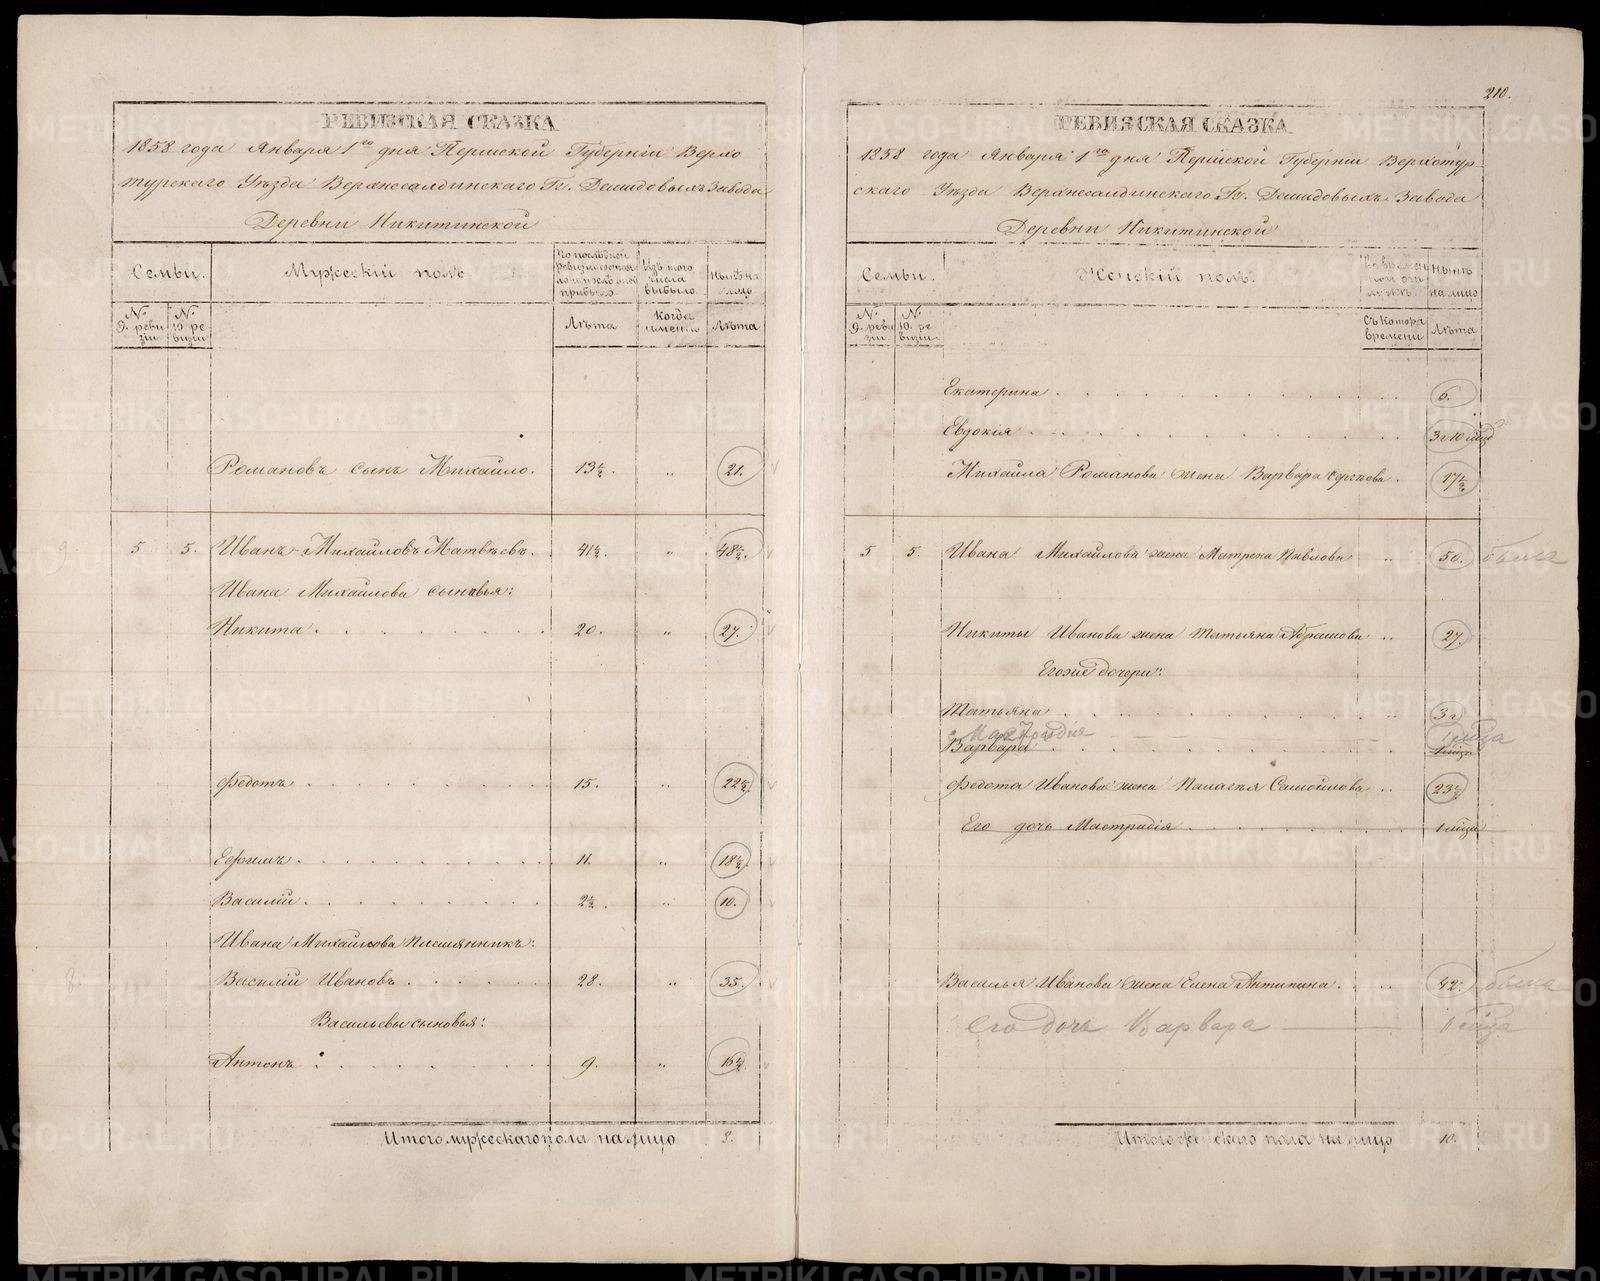 РЕВИЗСКАЯ СКАЗКА
1858 года Января 1го дня Пермской Губерніи Верхо
турскаго Уѣзда Верхнесалдинскаго Гг. Демидовыхъ Завода
Деревни Никитинской
Семьи. Мужескій полъ
По послѣдней ревизіи состояло и послѣ оной прибыло
Изъ того числа выбыло
Нынѣ на лицо
№ 9. ревизіи № 10. ревизіи Лѣта Когда именно Лѣта
Романовъ сынъ Михайло. 13½. „ 21.
5 5. Иванъ Михайловъ Матвѣевъ. 41½. „ 48½.
Ивана Михайлова сыновья:
Никита. 20. „ 27.
Федотъ 15. „ 22½
Ефимъ. 11. „ 18½
Василій. 2½. „ 10.
Ивана Михайлова племянникъ:
Василій Ивановъ. 28. „ 35.
Васильевы сыновья:
Антонъ 9. „ 16½
Итого мужескаго пола на лицо 8.
210.
РЕВИЗСКАЯ СКАЗКА
1858 года Января 1го дня Пермской Губерніи Верхотур-
скаго Уѣзда Верхнесалдинскаго Гг. Демидовыхъ Завода
Деревни Никитинской
Семьи. Женскій полъ.
Во временной отлучкѣ
Нынѣ на лицо
№ 9. ревизіи № 10. ревизіи Съ котора времени Лѣта
Екатерина 6.
Евдокія 3 г 10
Михайла Романова жена Варвара 17½
5 5. Ивана Михайлова жена Матрена Павлова „ 50.
Никиты Иванова жена Татьяна Абрамова „ 27.
Егоже дочери:
Татьяна 3 г
Мастридія 1 мѣса
Варвара 1 мѣса
Федота Иванова жена Пелагея Самойлова „ 23½
Его дочь Мастридія 1 мѣса
Василья Иванова жена Елена Антипина. 42.
Его дочь Варвара 1 мѣса
Итого женскаго пола на лицо 10.
METRIKI.GASO-URAL.RU